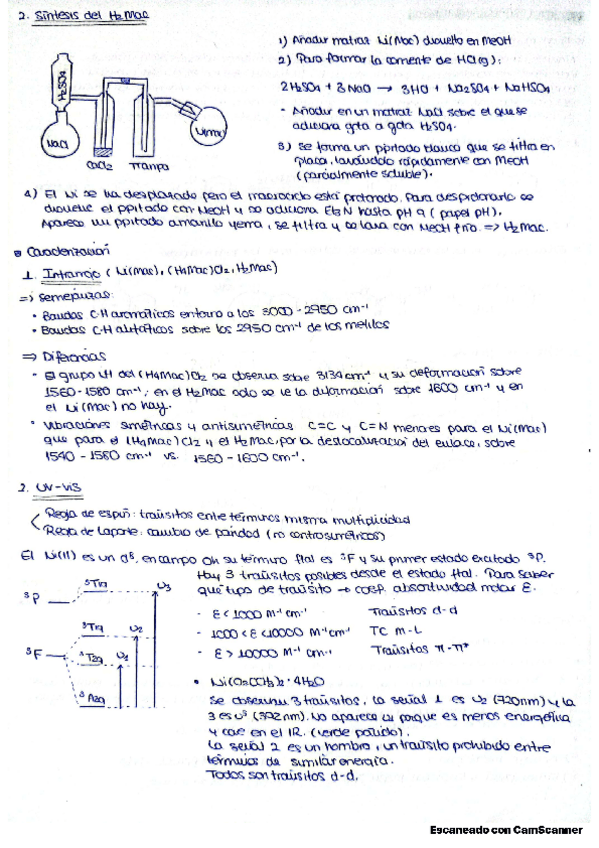 2. Síntesis del H2Mac
1) Añadir matraz Ni(Mac) disuelto en MeOH
2) Para formar la corriente de HCl(g):
2H2SO4 + 3NaCl → 3HCl + Na2SO4 + NaHSO4
- Añadir en un matraz NaCl sobre el que se
adiciona gota a gota H2SO4.
3) Se forma un pptado blanco que se filtra en
placa, lavándolo rápidamente con MeOH
(parcialmente soluble).
H2SO4
NaCl
CaCl2 Trampa
Ni(mac)
4) El Ni se ha desplazado pero el macrociclo está protonado. Para desprotonarlo se
disuelve el pptado con MeOH y se adiciona Et3N hasta pH 9 (papel pH).
Aparece un pptado amarillo yema, se filtra y se lava con MeOH frío. => H2Mac.
Caracterización
1. Infrarrojo (Ni(mac), (H4Mac)Cl2, H2Mac)
=> Semejanzas:
• Bandas C-H aromáticos entorno a los 3000 - 2950 cm-1
• Bandas C-H alifáticos sobre los 2950 cm-1 de los metilos
=> Diferencias
• El grupo NH del (H4Mac)Cl2 se observa sobre 3134 cm-1 y su deformación sobre
1560-1580 cm-1; en el H2Mac solo se ve la deformación sobre 1600 cm-1 y en
el Ni(Mac) no hay.
• Vibraciones simétricas y antisimétricas C=C y C=N menores para el Ni(Mac)
que para el (H4Mac)Cl2 y el H2Mac, por la deslocalización del enlace, sobre
1540 - 1580 cm-1 vs. 1560 - 1600 cm-1.
2. UV-VIS
Regla de espín: tránsitos entre términos misma multiplicidad
Regla de Laporte: cambio de paridad (no centrosimétricos)
El Ni(II) es un d8, en campo Oh su término ftal es 3F y su primer estado excitado 3P.
Hay 3 tránsitos posibles desde el estado ftal. Para saber
que tipo de tránsito → coef. absortividad molar ε.
- ε < 1000 M-1 cm-1 Tránsitos d-d
- 1000 < ε < 10000 M-1 cm-1 TC M-L
- ε > 10000 M-1 cm-1 Tránsitos π-π*
3P
3T1g
υ3
3T1g
υ2
3F
3T2g
υ1
3A2g
• Ni(O2CCH3)2 · 4H2O
Se observan 3 tránsitos, la señal 1 es υ2 (720nm) y la
3 es υ3 (392nm). No aparece υ1 porque es menos energética
y cae en el IR. (verde pálido).
La señal 2 es un hombro, un tránsito prohibido entre
términos de similar energía.
Todos son tránsitos d-d.
Escaneado con CamScanner